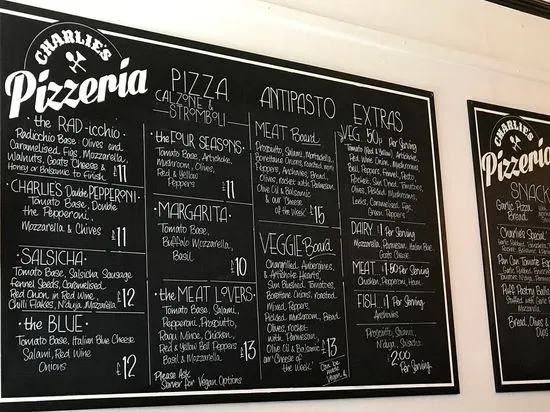 CHARLIE'S
Pizzeria
the RAD-icchio
Radicchio Base - Olives and
Caramelised Figs, Mozzarella,
Walnuts, Goats Cheese &
Honey or Balsamic to Finish
£11
CHARLIES Double PEPPERONI
Tomato Base, Double
the Pepperoni,
Mozzarella & Chives
£11
SALSICHA
Tomato Base, Salsicha Sausage
Fennel Seeds, Caramelised
Red Onion in Red Wine
Chilli Flakes, N'duja, Mozzarella
£12
the BLUE
Tomato Base, Italian Blue Cheese
Salami, Red Wine
Onions
£12
PIZZA
CALZONE &
STROMBOLI
the FOUR SEASONS
Tomato Base, Artichoke,
Mushroom, Olives,
Red & Yellow
Peppers
£11
MARGARITA
Tomato Base,
Buffalo Mozzarella,
Basil
£10
the MEAT LOVERS
Tomato Base, Salami,
Pepperoni, Prosciutto,
Ragu Mince, Chicken,
Red & Yellow Bell Peppers
Basil & Mozzarella
£13
Please Ask
Server for Vegan Options
ANTIPASTO
MEAT Board
Prosciutto, Salami, Mortadella,
Borettane Onions, roasted mix
Peppers, Artichokes, Bread,
Olives, rocket with Parmesan,
Olive Oil & Balsamic
& our 'Cheese
of the Week'
£15
VEGGIE Board
Chargrilled Aubergines,
& Artichoke Hearts,
Sun Blushed Tomatoes,
Borettane Onions, roasted
Mixed Peppers
Pickled Mushroom, Bread
Olives, rocket
with Parmesan,
Olive Oil & Balsamic
our 'Cheese of
the Week'
£13
Can be made
Vegan
EXTRAS
VEG 50p Per Serving
Tomato (Red & Yellow), Artichoke,
Red Wine Onion, Mushroom,
Bell Peppers, Fennel, Pesto
Rocket, Sun Dried Tomatoes,
Olives, Pickled Mushrooms
Leeks, Caramelised Figs
Green Peppers
DAIRY £1 Per Serving
Mozzarella, Parmesan, Italian Blue
Goats Cheese
MEAT £1.50 Per Serving
Chicken, Pepperoni, Ham,
FISH £1 Per Serving
Anchovies
Prosciutto, Salami,
N'duja, Salsicha
£2.00
Per Serving
CHARLIE'S
Pizzeria
SNACK
Garlic Pizza
Bread
'Charlie's Special'
Pan Con Tomate
Puff Pastry Balls
Stuffed with
Mozzarella
Bread, Olives &
Dips